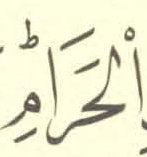 الْحَرَامِ ؕ